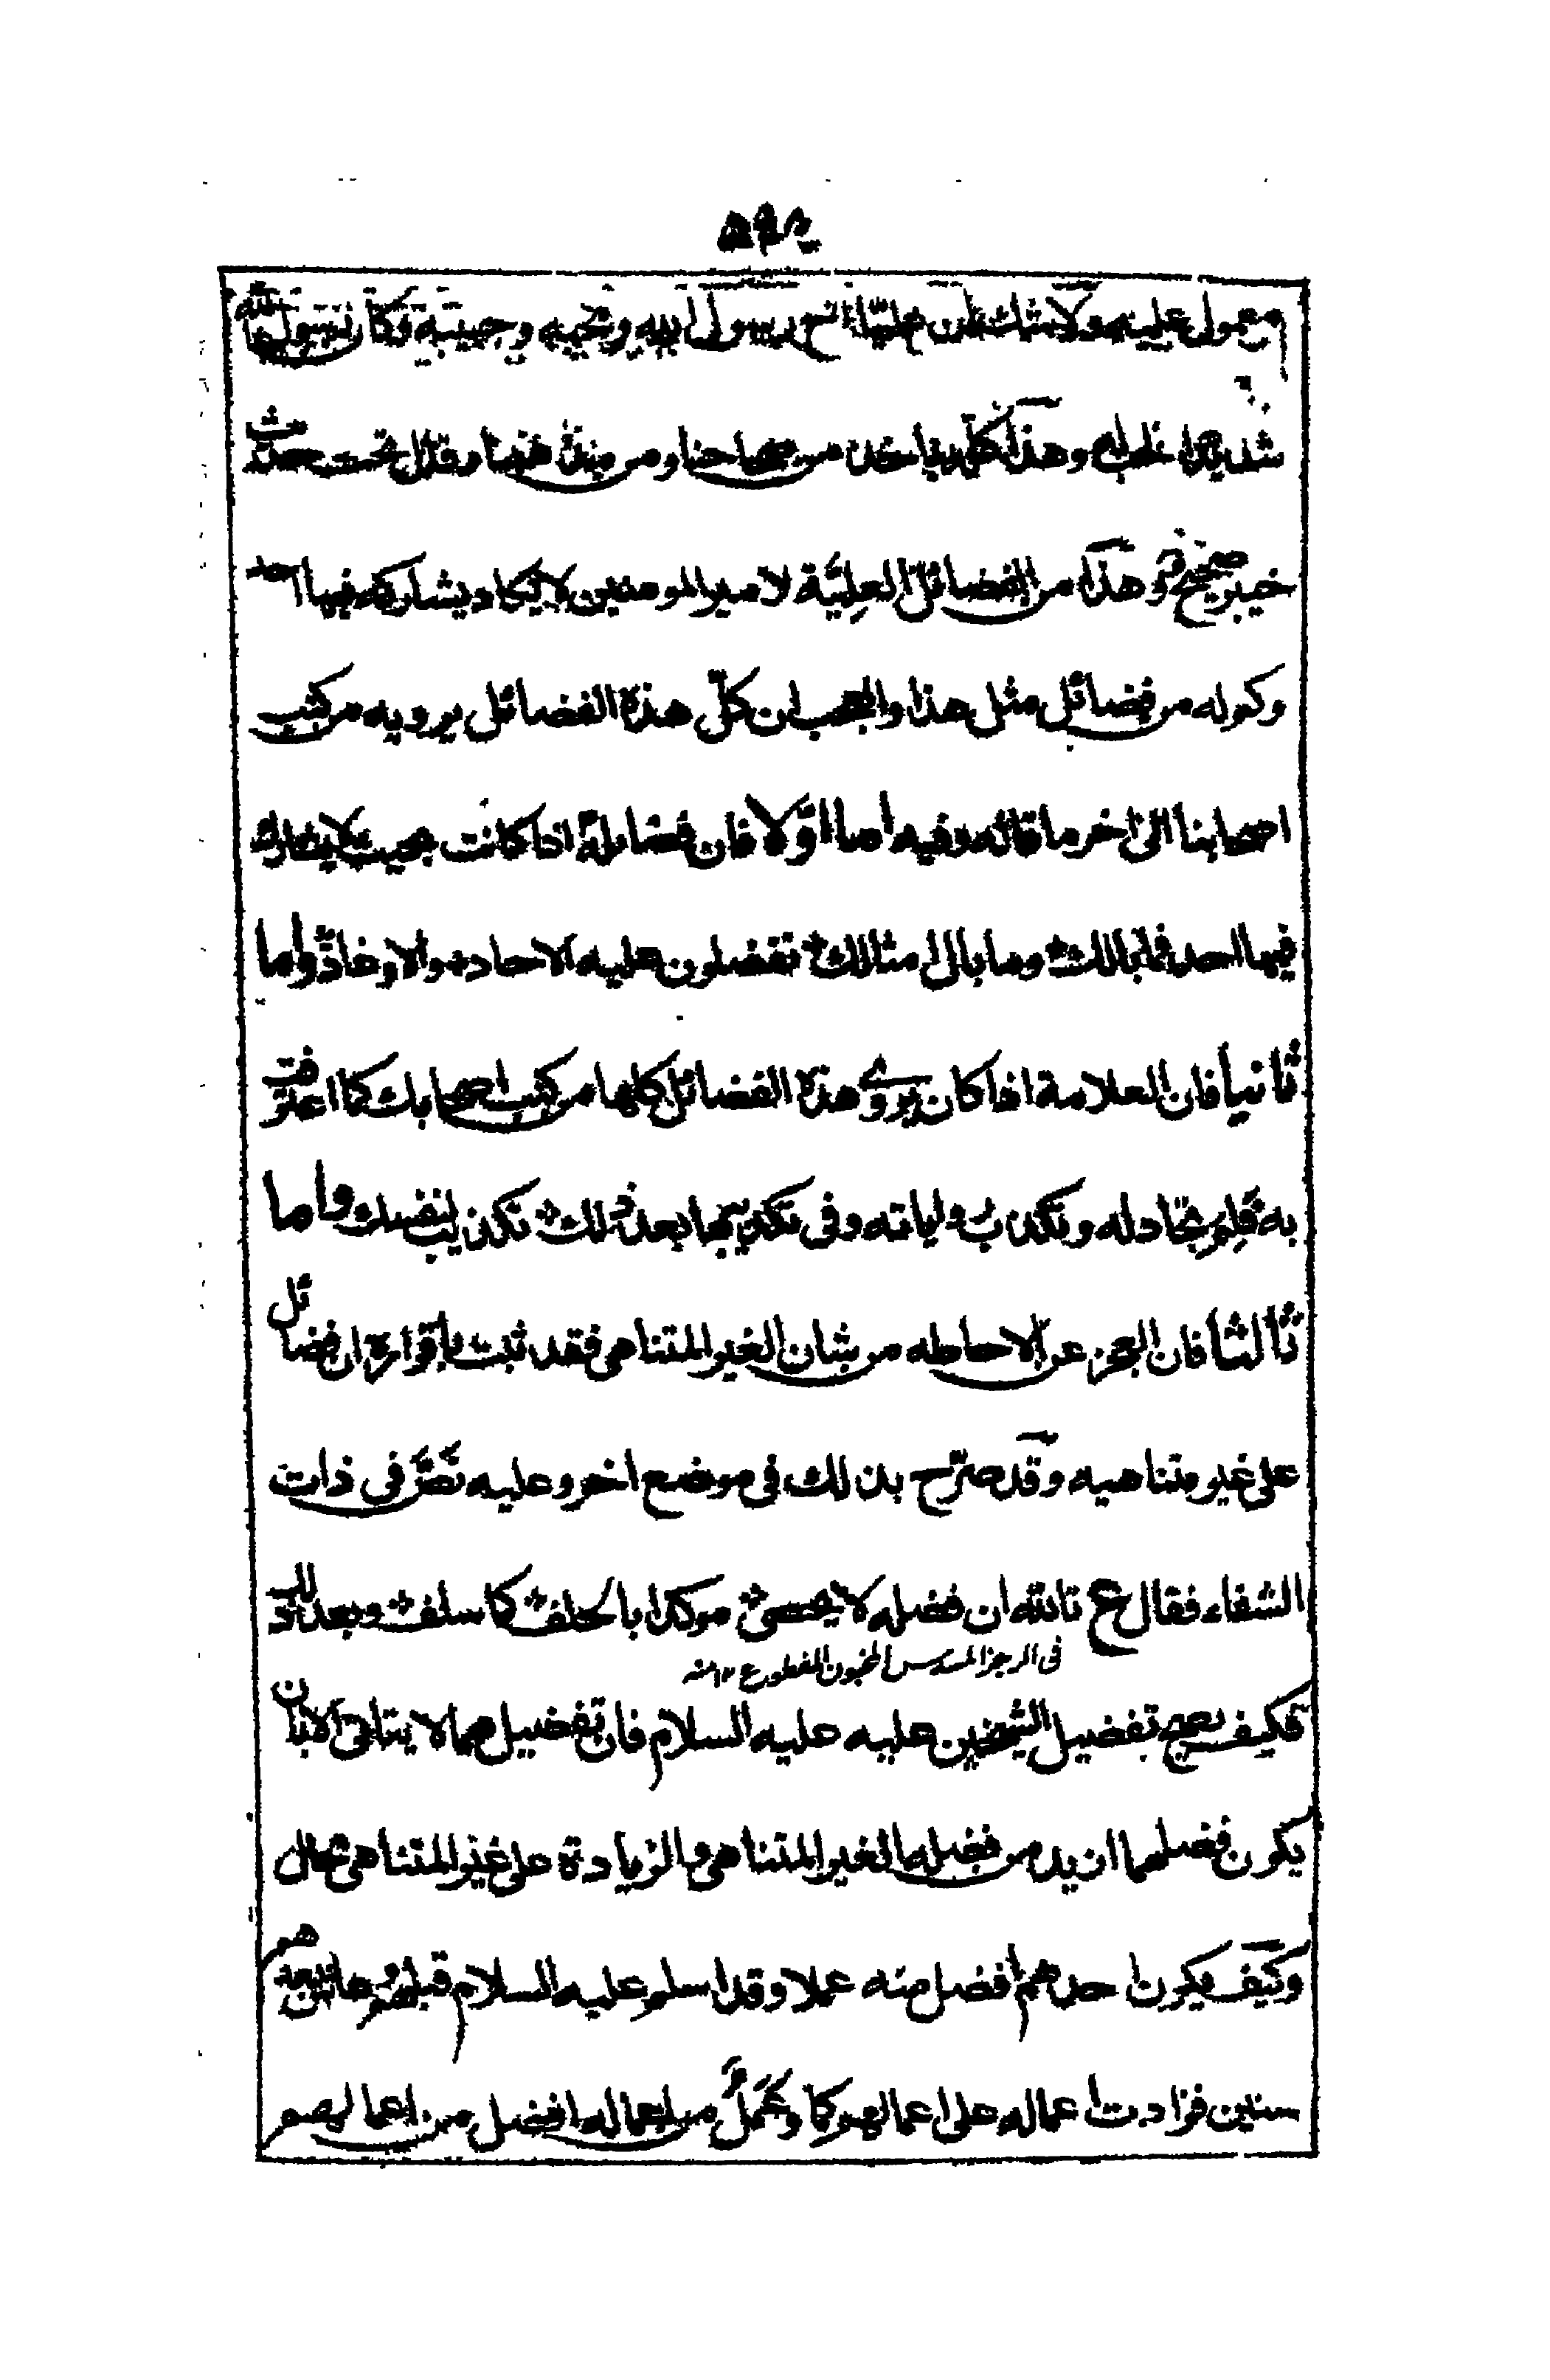 معمول عليه ولا شك ان عليّا اخ رسول الله وحبيبه وكان رسول الله
شديدا وهذا كله من صحاحنا ومن حديث
خيبر صحيح وهذا من الفضائل العليّة لامير المومنين لا يكاد يشاركه فيها احد
وكم له من فضائل مثل هذا والعجب ان كلّ هذه الفضائل يرويه من كتب
اصحابنا الى اخر ما قاله وفيه اما اوّلا فان فضائله اذا كانت بحيث لا يشارك
فيها احد فما بالك وما بال امثالك تفضلون عليه الاحاد والاوغاد واما
ثانيا فان العلامة اذا كان يروى هذه الفضائل كلها من كتب اصحابك كما اعترفت
به فلم تجادله وتكذب رواياته وفى تكذيبها بعد ذلك تكذيب لنفسك واما
ثالثا فان العجز عن الاحاطه من شان الغير المتناهى فقد ثبت باقراره ان فضائل
على غير متناهيه وقد صرّح بذلك فى موضع اخر وعليه نصّ فى ذات
الشفاء فقال ع تالله ان فضله لا يحصى موكدا بالحلف كما سلف وبعد ذلك
فى الرجز المسدس المخبون المقطوع ١٢ منه
فكيف يصح تفضيل الشيخين عليه عليه السلام فان تفضيلهما لا يتاتى الا بان
يكون فضلهما ازيد من فضله الغير المتناهى والزيادة على غير المتناهى محال
وكيف يكون احدهم افضل منه عملا وقد اسلم عليه السلام قبلهم
سنين فزادت اعماله على اعمالهم كما وعمل من اعماله افضل من اعمالهم